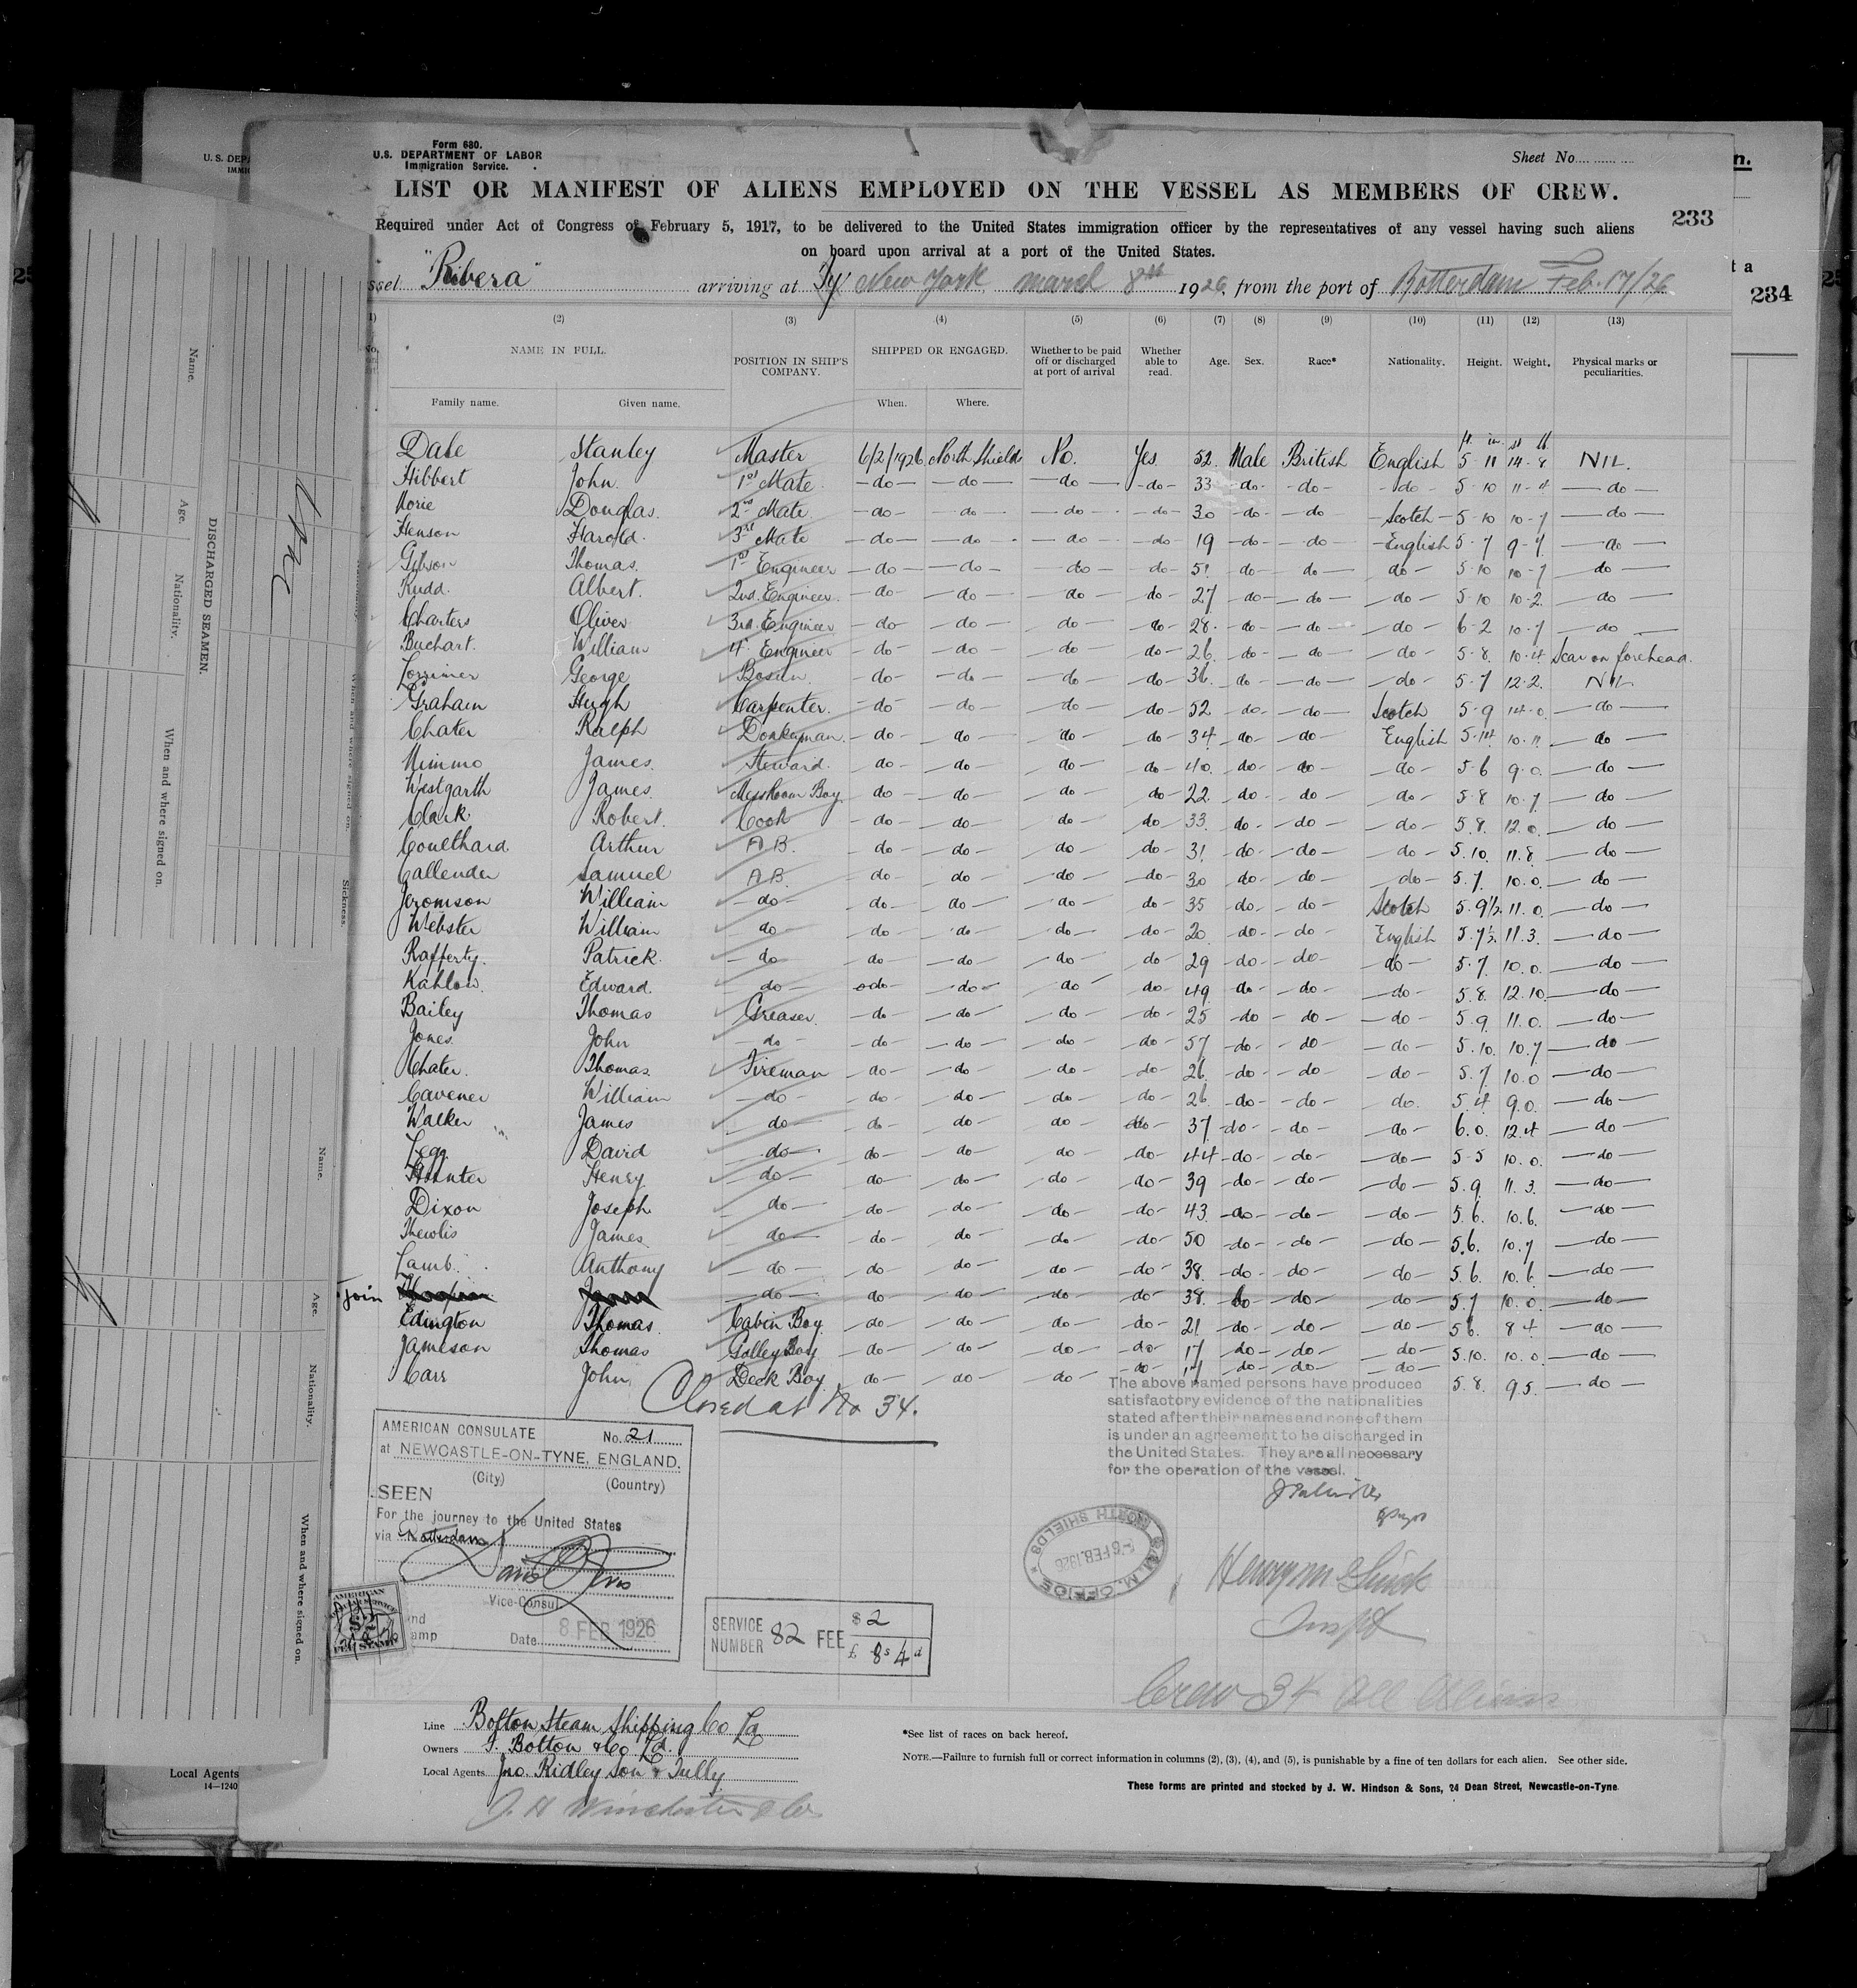 Form 680.
U.S. DEPARTMENT OF LABOR
Immigration Service.
Sheet No.
LIST OR MANIFEST OF ALIENS EMPLOYED ON THE VESSEL AS MEMBERS OF CREW.
233
Required under Act of Congress of February 5, 1917, to be delivered to the United States immigration officer by the representatives of any vessel having such aliens
on board upon arrival at a port of the United States.
ssel "Ribera" arriving at New York March 8th 1926, from the port of Rotterdam Feb. 17/26
234
(2) (3) (4) (5) (6) (7) (8) (9) (10) (11) (12) (13)
NAME IN FULL. POSITION IN SHIP'S COMPANY. SHIPPED OR ENGAGED. Whether to be paid off or discharged at port of arrival Whether able to read. Age. Sex. Race* Nationality. Height. Weight. Physical marks or peculiarities.
Family name. Given name. When. Where.
ft. in. st. lb
Dale Stanley Master 6/2/1926 North Shields No. Yes 52 Male British English 5-11 14-8 NIL.
Hibbert John 1st Mate -do- -do- -do- -do- 33 -do- -do- -do- 5-10 11-4 -do-
Douglas 2nd Mate -do- -do- -do- -do- 30 -do- -do Scotch 5-10 10-7 -do-
Henson Harold 3rd Mate -do- -do- -do- -do- 19 -do- -do- English 5-7 9-7 -do-
Gibson Thomas 1st Engineer -do- -do- -do- -do- 51 do- do- do- 5-10 10-7 do-
Rudd Albert 2nd Engineer -do- -do- do- do- 27 -do- -do- -do- 5-10 10-2 -do-
Charters Oliver 3rd Engineer -do- -do- do- do- 28 -do- -do- -do- 6-2 10-7 -do-
Buchart William 4th Engineer -do- -do- do- do- 26 do- do- -do- 5-8 10-4 Scar on forehead.
Lorrimer George Bosun -do- -do- do- do- 36 do- -do- -do- 5-7 12-2 NIL
Graham Hugh Carpenter -do- -do- do- do- 52 -do- -do- Scotch 5-9 14-0 -do-
Chater Ralph Donkeyman -do- do- do- do- 34 do- do- English 10-11 -do-
Nimmo James Steward do- -do- do- do- 40 do- do- -do- 5-6 9-0 -do-
Westgarth James MessRoom Boy do- -do- do- do- 22 do- do- -do- 5-8 10-7 -do-
Clark Robert Cook -do- -do- do- do 33 do- do- -do- 5.8. 12.0. -do-
Coulthard Arthur A.B. do- -do- do- do- 31 do- do- -do- 5.10. 11.8. -do-
Callender Samuel A.B. do- do- do- do- 30 do- do- -do- 5.7. 10.0. -do-
Jeromson William -do- do- do- do- do- 35 do- do- Scotch 5.9½ 11.0. -do-
Webster William do- do- do- do- do- 20 -do- do- English 5.7½ 11.3. -do-
Rafferty Patrick -do do- do- do- do 29 -do- do- do- 5.7. 10.0. -do-
Kahlow Edward -do- do- -do- do- do- 49 do- do- -do- 5.8. 12.10. -do-
Bailey Thomas Greaser -do- -do- do- do- 25 -do -do- -do- 5.9. 11.0. -do-
Jones John -do- -do- -do- do- do- 57 -do- do- -do- 5.10. 10.7 -do-
Chater Thomas Fireman -do- -do- do- do- 26 -do- -do- do- 5.7 10.0 -do-
Cavener William -do- do- do- do- do- 26 -do- -do- do. 5.4 9.0. -do-
Walker James do- do- do- do- do- 37 -do- -do- do- 6.0. 12.4 -do-
Legg David -do- do- do- do- do- 44 -do- -do- -do- 5-5 10.0. -do-
Hunter Henry -do- do- do- do- do- 39 -do- -do- -do- 5.9. 11.3. -do-
Dixon Joseph do- do- do- do- do- 43 -do- -do- -do- 5.6. 10.6. -do-
Thewlis James do- do- do- do- do- 50 -do- -do- -do- 5.6. 10.7 -do-
Lamb Anthony -do- do- do- do- -do- 38 -do- -do- -do- 5.6. 10.6. -do-
join -do- do do- do- do- 38 do- -do- -do- 5.7 10.0. -do-
Edington Thomas Cabin Boy -do- -do- do- -do- 21 -do- -do- -do- 5.6. 8.4 -do-
Jameson Thomas Galley Boy -do- do- do- -do- 17 do- do- do- 5.10. 10.0. -do-
Carr John Deck Boy do- -do- do- do- 17 do- do- do- 5.8. 9.5. -do-
Closed at No 34.
The above named persons have produced
satisfactory evidence of the nationalities
stated after their names and none of them
is under an agreement to be discharged in
the United States. They are all necessary
for the operation of the vessel.
AMERICAN CONSULATE No. 21
at NEWCASTLE-ON-TYNE, ENGLAND.
(City) (Country)
SEEN
For the journey to the United States
via Rotterdam
Vice-Consul
Date 8 FEB 1926
AMERICAN
$2
FEE STAMP
SERVICE NUMBER 82 FEE $2
£ 8s 4d
M.M. OFFICE
-6 FEB. 1926
NORTH SHIELDS
Inspt
Crew 34 All Aliens
Line Bolton Steam Shipping Co Ld
Owners F. Bolton & Co Ld.
Local Agents Jno. Ridley Son & Tully
J. H. Winchester & Co
*See list of races on back hereof.
NOTE.—Failure to furnish full or correct information in columns (2), (3), (4), and (5), is punishable by a fine of ten dollars for each alien. See other side.
These forms are printed and stocked by J. W. Hindson & Sons, 24 Dean Street, Newcastle-on-Tyne.
Local Agents
14—1240
DISCHARGED SEAMEN.
Name.
Age.
Nationality.
When and where signed on.
Sickness.
Name.
Age.
Nationality.
When and where signed on.